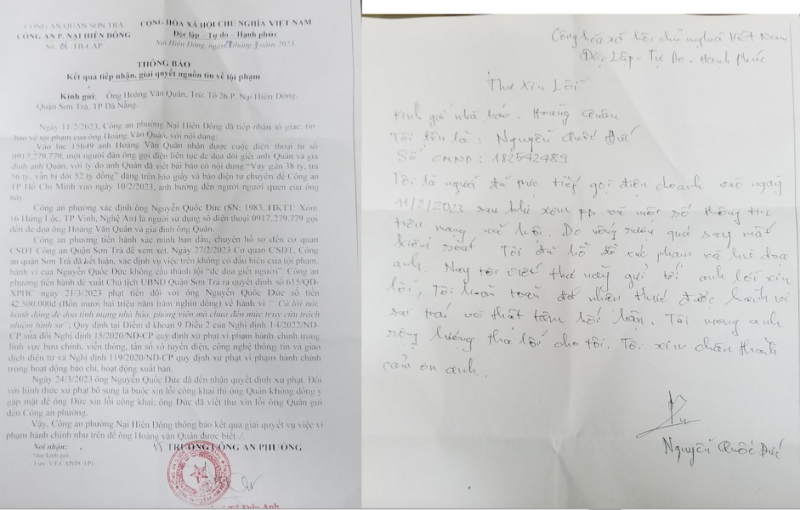 CÔNG AN QUẬN SƠN TRÀ
CÔNG AN P. NẠI HIÊN ĐÔNG
CỘNG HÒA XÃ HỘI CHỦ NGHĨA VIỆT NAM
Độc lập - Tự do - Hạnh phúc
Nại Hiên Đông, ngày tháng 3 năm 2023
THÔNG BÁO
Kết quả tiếp nhận, giải quyết nguồn tin về tội phạm
Kính gửi: Ông Hoàng Văn Quân, Trú: Tổ 26 P. Nại Hiên Đông,
Quận Sơn Trà, TP Đà Nẵng.
Ngày 11/2/2023, Công an phường Nại Hiên Đông đã tiếp nhận tố giác, tin
báo về tội phạm của ông Hoàng Văn Quân, với nội dung:
Vào lúc 15h49 anh Hoàng Văn Quân nhận được cuộc điện thoại từ số
0917.279.779, một người đàn ông gọi điện liên tục đe dọa đòi giết anh Quân và gia
đình anh Quân, với lý do anh Quân đã viết bài báo có nội dung "Vay gần 38 tỷ, trả
96 tỷ, vẫn bị đòi 52 tỷ đồng" đăng trên báo giấy và báo điện tử chuyên đề Công an
TP Hồ Chí Minh vào ngày 10/2/2023, ảnh hưởng đến người người quen của ông
này.
Công an phường xác định ông Nguyễn Quốc Đức (SN: 1983, HKTT: Xóm
16 Hưng Lộc, TP Vinh, Nghệ An) là người sử dụng số điện thoại 0917.279.779 gọi
đến đe dọa ông Hoàng Văn Quân và gia đình ông Quân.
Công an phường tiến hành xác minh ban đầu, chuyển hồ sơ đến cơ quan
CSĐT Công an Quận Sơn Trà để xem xét. Ngày 27/2/2023 Cơ quan CSĐT, Công
an quận Sơn Trà đã kết luận, xác định vụ việc trên không có dấu hiệu của tội phạm,
hành vi của Nguyễn Quốc Đức không cấu thành tội "đe dọa giết người". Công an
phường tiến hành đề xuất Chủ tịch UBND Quận Sơn Trà ra quyết định số 615/QĐ-
XPHC ngày 21/3/2023 phạt tiền đối với ông Nguyễn Quốc Đức số tiền
42.500.000đ (Bốn mươi hai triệu năm trăm nghìn đồng) về hành vi " Có lời nói,
hành động đe dọa tính mạng nhà báo, phóng viên mà chưa đến mức truy cứu trách
nhiệm hình sự"; Quy định tại Điểm d khoản 9 Điều 2 của Nghị định 14/2022/NĐ-
CP sửa đổi Nghị định 15/2020/NĐ-CP quy định xử phạt vi phạm hành chính trong
lĩnh vực bưu chính, viễn thông, tần số vô tuyến điện, công nghệ thông tin và giao
dịch điện tử và Nghị định 119/2020/NĐ-CP quy định xử phạt vi phạm hành chính
trong hoạt động báo chí, hoạt động xuất bản.
Ngày 24/3/2023 ông Nguyễn Quốc Đức đã đến nhận quyết định xử phạt. Đối
với hình thức xử phạt bổ sung là buộc xin lỗi công khai thì ông Quân không đồng ý
gặp mặt để ông Đức xin lỗi công khai; ông Đức đã viết thư xin lỗi ông Quân gửi
đến Công an phường.
Vậy, Công an phường Nại Hiên Đông thông báo kết quả giải quyết vụ việc vi
phạm hành chính như trên để ông Hoàng văn Quân được biết ./.
Nơi nhận:
TRƯỞNG CÔNG AN PHƯỜNG
Như kính gửi
Cộng hòa xã hội chủ nghĩa Việt Nam
Độc Lập - Tự Do - Hạnh Phúc
Thư Xin Lỗi
Kính gửi nhà báo. Hoàng Quân
Tôi tên là: Nguyễn Quốc Đức
Số CMND: 182542489
Tôi là người đã trực tiếp gọi điện doạnh vào ngày
11/2/2023 sau khi xem và một số thông tin
trên mạng xã hội. Do nóng quá say mất
kiểm soát. Tôi đã hồ đồ xúc phạm và hù dọa
anh. Nay tôi viết thư này gửi tới anh lời xin
lỗi, Tôi hoàn toàn đã nhận thức được hành vi
sai trái và thật tâm hối hận. Tôi mong anh
rộng lượng tha lỗi cho tôi. Tôi xin chân thành
cảm ơn anh.
Nguyễn Quốc Đức